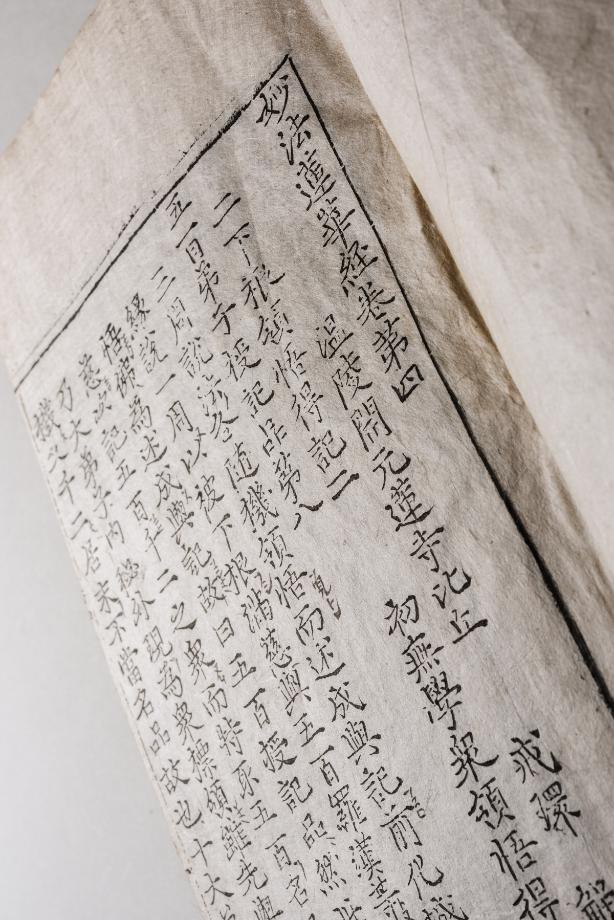 妙法蓮華經卷第四
溫陵開元蓮寺比丘 戒環
二下根領悟得記二 初無學衆領悟得
五百弟子授記品第八
三周說法各随機領悟而述成與記前化城
緣說一周以被下根滿慈與五百羅漢
悟佛為述成與記故曰五百授記品然
慈次記五百千二之衆而特示五百名
乃大弟子內秘外現為衆標領雖先與
機之千二居末不當名品故也十大